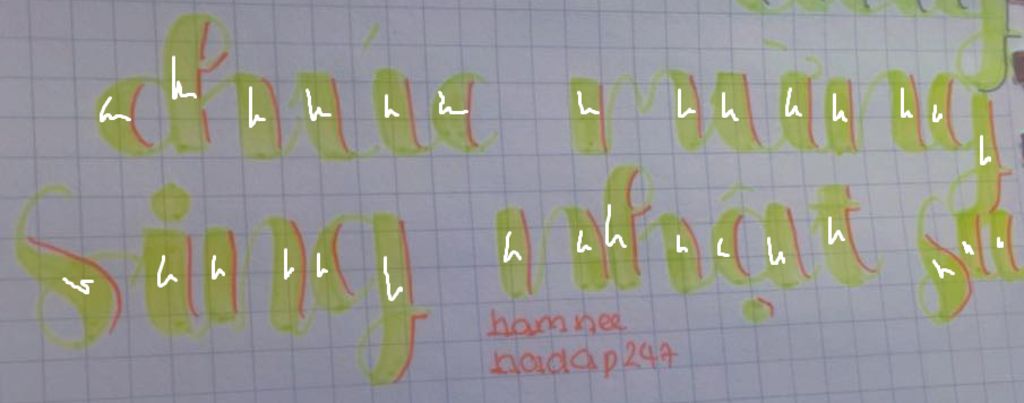 chúc mừng
sing nhật
hamnee
nadap247